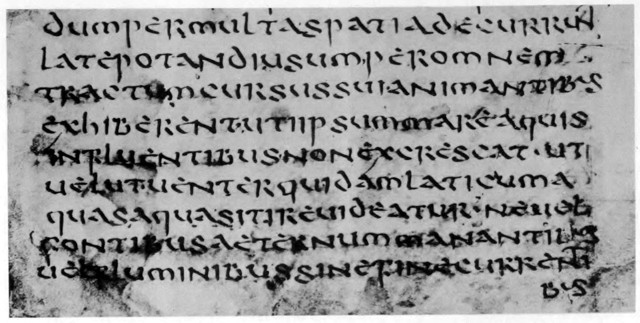 dumpermultaspatiadecurrun
latepotandiusumperomnem
tractumcursussuianimantibus
exhiberent·utiipsummareaquis
influentibusnonexcrescat·uti
uelutuenterquidamlaticuma
quasaquasitireuideatur·neuel
fontibusaeternummanantibus
uelfluminibussinefinecurrenti
bus